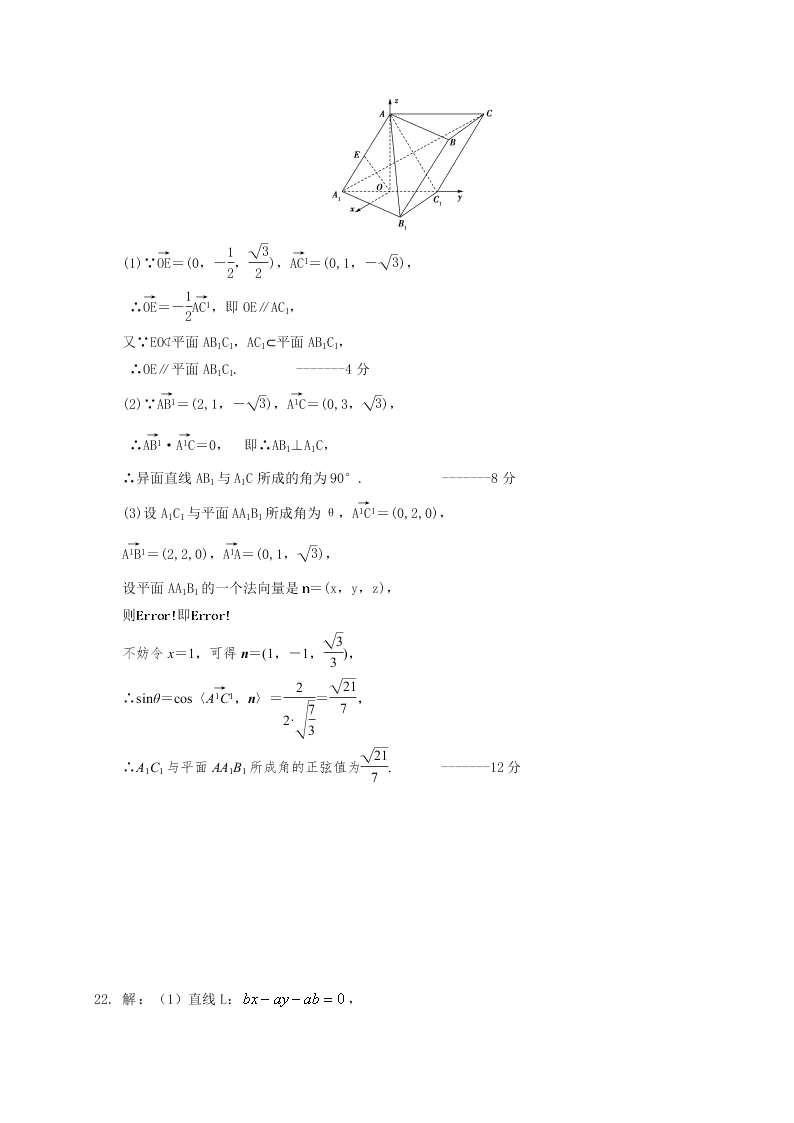 z
A C
B
E
A₁ O C₁ y
x
B₁
(1)∵OE→=(0，-1/2，√3/2)，AC₁→=(0,1，-√3)，
∴OE→=-1/2AC₁→，即 OE∥AC₁，
又∵EO⊄平面 AB₁C₁，AC₁⊂平面 AB₁C₁，
∴OE∥平面 AB₁C₁. -------4 分
(2)∵AB₁→=(2,1，-√3)，A₁C→=(0,3，√3)，
∴AB₁→·A₁C→=0， 即∴AB₁⊥A₁C，
∴异面直线 AB₁与A₁C 所成的角为90°. -------8 分
(3)设 A₁C₁与平面 AA₁B₁所成角为 θ，A₁C₁→=(0,2,0)，
A₁B₁→=(2,2,0)，A₁A→=(0,1，√3)，
设平面 AA₁B₁的一个法向量是n=(x，y，z)，
则Error!即Error!
不妨令 x=1，可得 n=(1，-1，√3/3)，
∴sinθ=cos〈A₁C₁→，n〉=2/(2·√(7/3))=√21/7，
∴A₁C₁与平面 AA₁B₁所成角的正弦值为√21/7. -------12 分
22. 解：（1）直线 L：bx-ay-ab=0，